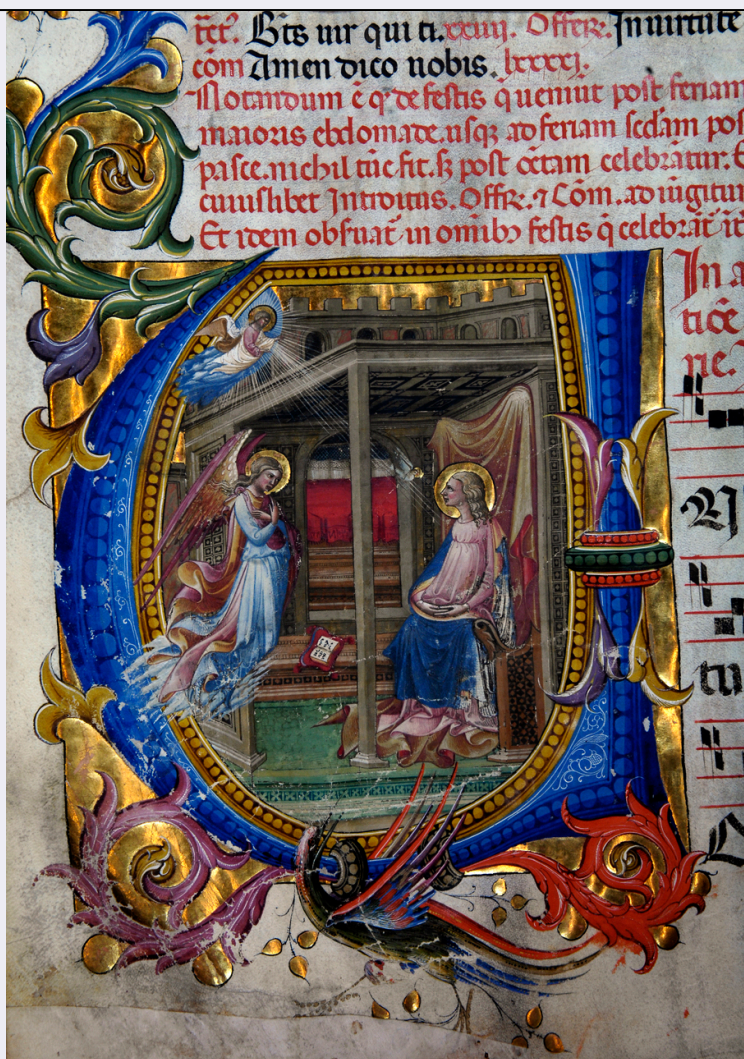 tet̃. Bt̃s uir qui ti. xxiiij. Offere. In uirtute
com̃ Amen dico uobis. lxxxxj.
Notandum ẽ q̃ de festis q̃ ueniut post feriam
maioris ebdomade. usq; ad feriam scdam pos
pasce. nichil tũc fit. s; post octam celebrãtur. E
cuiuslibet Introitus. Offr̃e. ⁊ Com̃. ad iũgitur
Et idem obseruat̃ in omib; festis q̃ celebrãt̃ it
In a
ticẽ
rie.
tu